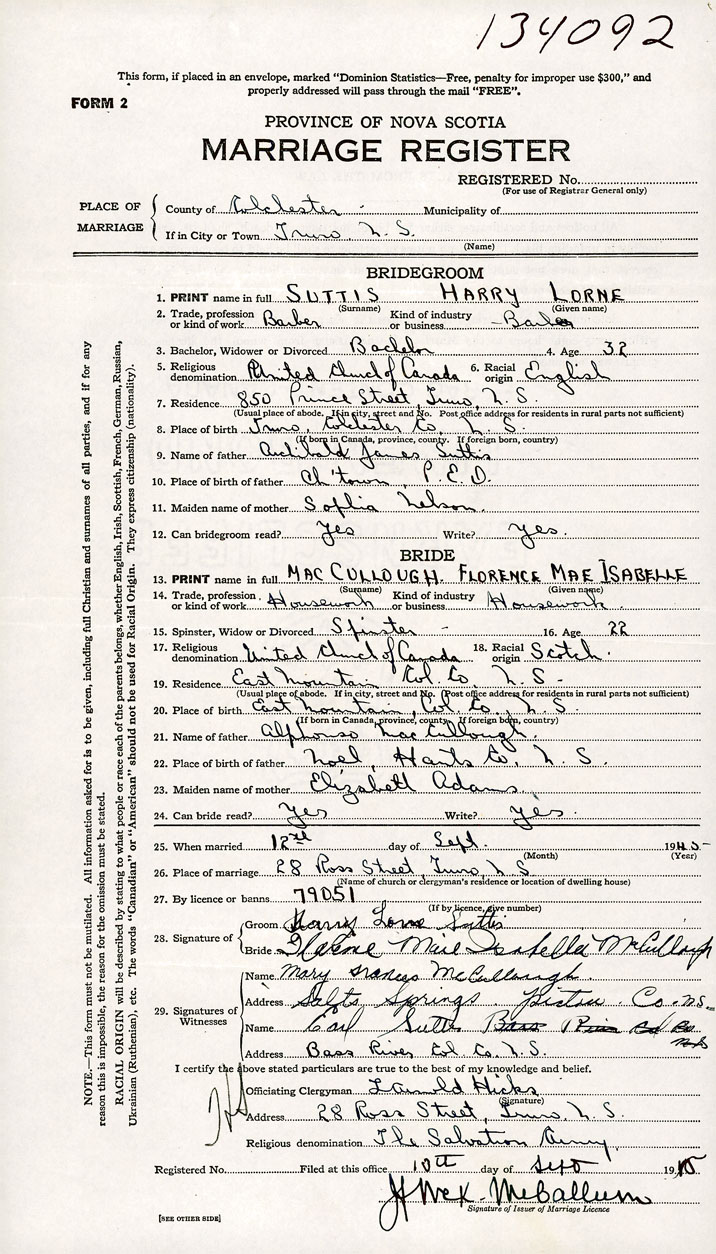 134092
This form, if placed in an envelope, marked "Dominion Statistics—Free, penalty for improper use $300," and
properly addressed will pass through the mail "FREE".
FORM 2
PROVINCE OF NOVA SCOTIA
MARRIAGE REGISTER
REGISTERED No.
(For use of Registrar General only)
PLACE OF MARRIAGE
County of Colchester Municipality of
If in City or Town Truro N. S.
(Name)
BRIDEGROOM
1. PRINT name in full SUTTIS HARRY LORNE
(Surname) (Given name)
2. Trade, profession or kind of work Barber Kind of industry or business Barber
3. Bachelor, Widower or Divorced Bachelor 4. Age 32
5. Religious denomination United Church of Canada 6. Racial origin English
7. Residence 850 Prince Street, Truro, N. S.
(Usual place of abode. If in city, street and No. Post office address for residents in rural parts not sufficient)
8. Place of birth Truro, Colchester Co, N. S.
(If born in Canada, province, county. If foreign born, country)
9. Name of father Archibald James Suttis
10. Place of birth of father Ch'town, P.E.D.
11. Maiden name of mother Sophia Nelson.
12. Can bridegroom read? Yes Write? Yes.
BRIDE
13. PRINT name in full MAC CULLOUGH. FLORENCE MAE ISABELLE
(Surname) (Given name)
14. Trade, profession or kind of work Housework Kind of industry or business Housework.
15. Spinster, Widow or Divorced Spinster - 16. Age 22
17. Religious denomination United Church of Canada 18. Racial origin Scotch.
19. Residence East Mountain Col. Co, N. S.
(Usual place of abode. If in city, street and No. (Post office address for residents in rural parts not sufficient)
20. Place of birth East Mountain, Col. Co, N. S.
(If born in Canada, province, county. If foreign born, country)
21. Name of father Alphonso MacCullough.
22. Place of birth of father Noel, Hants Co, N. S.
23. Maiden name of mother Elizabeth Adams.
24. Can bride read? Yes Write? Yes.
25. When married 12th day of Sept. 1945
(Month) (Year)
26. Place of marriage 28 Ross Street, Truro, N. S.
(Name of church or clergyman's residence or location of dwelling house)
27. By licence or banns 79051
(If by licence, give number)
28. Signature of
Groom Harry Lorne Suttis
Bride Florence Mae Isabella McCullough
29. Signatures of Witnesses
Name Mary Frances McCullough.
Address Salts Springs Pictou Co. N.S.
Name Earl Suttis Bass River
Address Bass River Col. Co. N. S.
I certify the above stated particulars are true to the best of my knowledge and belief.
Officiating Clergyman Hicks
(Signature)
Address 28 Ross Street, Truro, N. S.
Religious denomination The Salvation Army.
Registered No. Filed at this office 10th day of Sept 1945
McCallum
Signature of Issuer of Marriage Licence
[SEE OTHER SIDE]
NOTE.—This form must not be mutilated. All information asked for is to be given, including full Christian and surnames of all parties, and if for any
reason this is impossible, the reason for the omission must be stated.
RACIAL ORIGIN will be described by stating to what people or race each of the parents belongs, whether English, Irish, Scottish, French, German, Russian,
Ukrainian (Ruthenian), etc. The words "Canadian" or "American" should not be used for Racial Origin. They express citizenship (nationality).